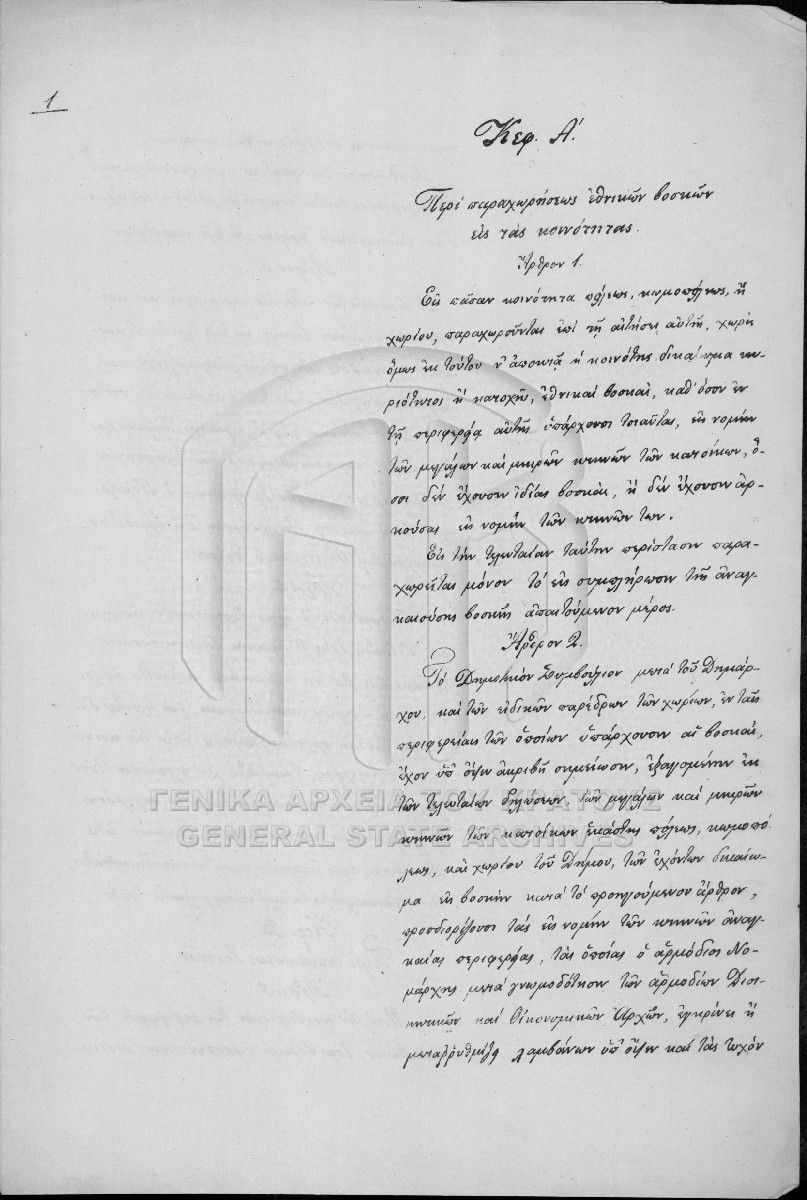 1
Κεφ. Α΄.
Περὶ παραχωρήσεως ἐθνικῶν βοσκῶν
εἰς τὰς κοινότητας.
Ἄρθρον 1.
Εἰς πᾶσαν κοινότητα πόλεως, κωμοπόλεως, ἢ
χωρίου, παραχωροῦνται ἐπὶ τῇ αἰτήσει αὐτῆς, χωρὶς
ὅμως ἐκ τούτου ν' ἀποκτᾷ ἡ κοινότης δικαίωμα κυ-
ριότητος ἢ κατοχῆς, ἐθνικαὶ βοσκαὶ, καθ' ὅσον ἐν
τῇ περιφερείᾳ αὐτῆς ὑπάρχουσι τοιαῦται, εἰς νομὴν
τῶν μεγάλων καὶ μικρῶν κτηνῶν τῶν κατοίκων, ὅ-
σοι δὲν ἔχουσιν ἰδίας βοσκὰς, ἢ δὲν ἔχουσιν ἀρ-
κούσας εἰς νομὴν τῶν κτηνῶν των.
Εἰς τὴν τελευταίαν ταύτην περίστασιν παρα-
χωρεῖται μόνον τὸ εἰς συμπλήρωσιν τῆς ἀναγ-
καιούσης βοσκῆς ἀπαιτούμενον μέρος.
Ἄρθρον 2.
Τὸ Δημοτικὸν Συμβούλιον μετὰ τοῦ Δημάρ-
χου, καὶ τῶν εἰδικῶν παρέδρων τῶν χωρίων, ἐν ταῖς
περιφερείαις τῶν ὁποίων ὑπάρχουσιν αἱ βοσκαὶ,
ἔχον ὑπ' ὄψιν ἀκριβῆ σημείωσιν, ἐξαγομένην ἐκ
τῶν τελευταίων δηλώσεων, τῶν μεγάλων καὶ μικρῶν
κτηνῶν τῶν κατοίκων ἑκάστης πόλεως, κωμοπό-
λεως, καὶ χωρίου τοῦ Δήμου, τῶν ἐχόντων δικαίω-
μα εἰς βοσκὴν κατὰ τὸ προηγούμενον ἄρθρον,
προσδιορίζουσι τὰς εἰς νομὴν τῶν κτηνῶν ἀναγ-
καίας περιφερείας, τὰς ὁποίας ὁ ἁρμόδιος Νο-
μάρχης μετὰ γνωμοδότησιν τῶν ἁρμοδίων Διοι-
κητικῶν καὶ Οἰκονομικῶν Ἀρχῶν, ἐγκρίνει ἢ
μεταῤῥυθμίζει λαμβάνων ὑπ' ὄψιν καὶ τὰς τυχὸν
ΓΕΝΙΚΑ ΑΡΧΕΙΑ ΤΟΥ ΚΡΑΤΟΥΣ
GENERAL STATE ARCHIVES